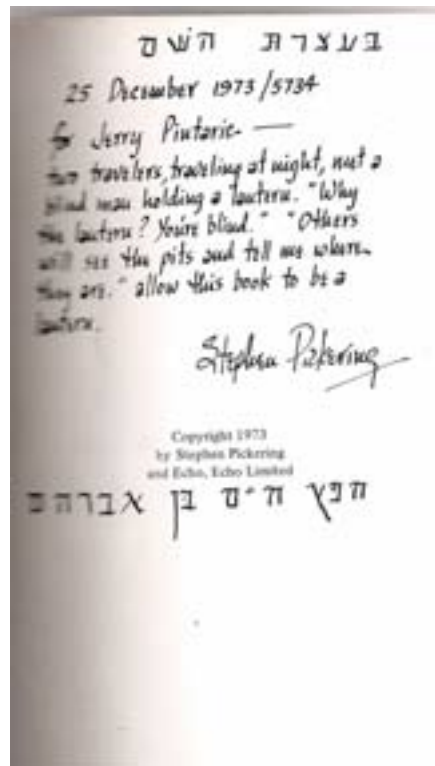 בעצרת השם
25 December 1973/5734
for Jerry Pintaric —
two travelers, traveling at night, met a
blind man holding a lantern. "Why
the lantern? You're blind." "Others
will see the pits and tell me where
they are." allow this book to be a
lantern.
Stephen Pickering
Copyright 1973
by Stephen Pickering
and Echo, Echo Limited
חפץ חיים בן אברהם